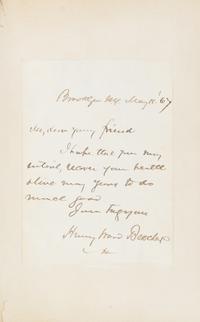 Brooklyn May '67
My dear young friend
I hope that you may
recover your health
and live many years to do
much good
Henry Ward Beecher